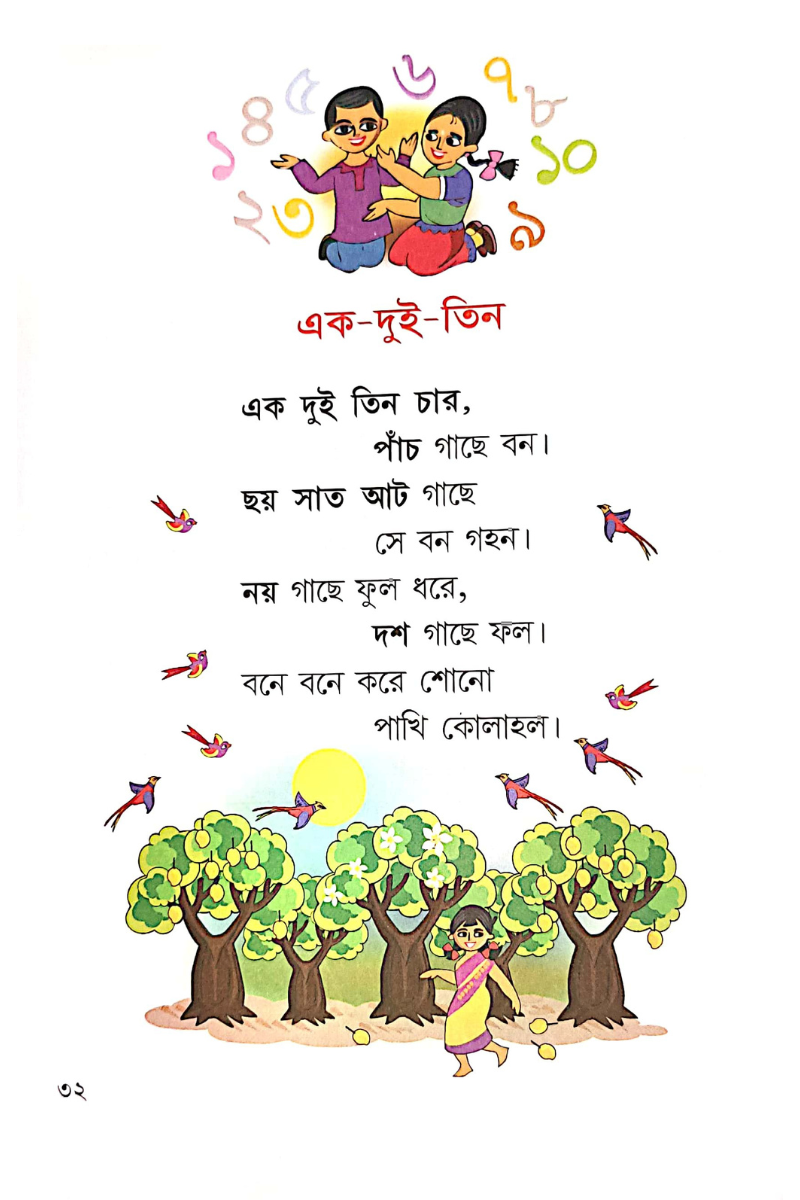 ১ ২ ৩ ৪ ৫ ৬ ৭ ৮ ৯ ১০
এক-দুই-তিন
এক দুই তিন চার,
পাঁচ গাছে বন।
ছয় সাত আট গাছে
সে বন গহন।
নয় গাছে ফুল ধরে,
দশ গাছে ফল।
বনে বনে করে শোনো
পাখি কোলাহল।
৩২